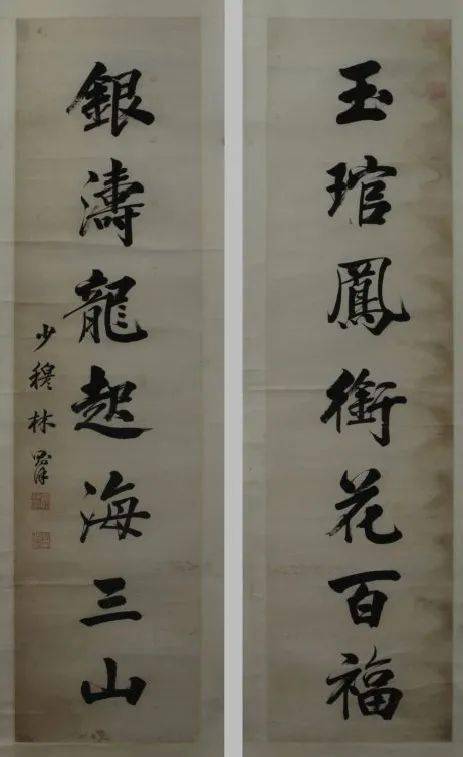 玉琯鳳銜花百福
銀濤龍起海三山
少穆林則徐